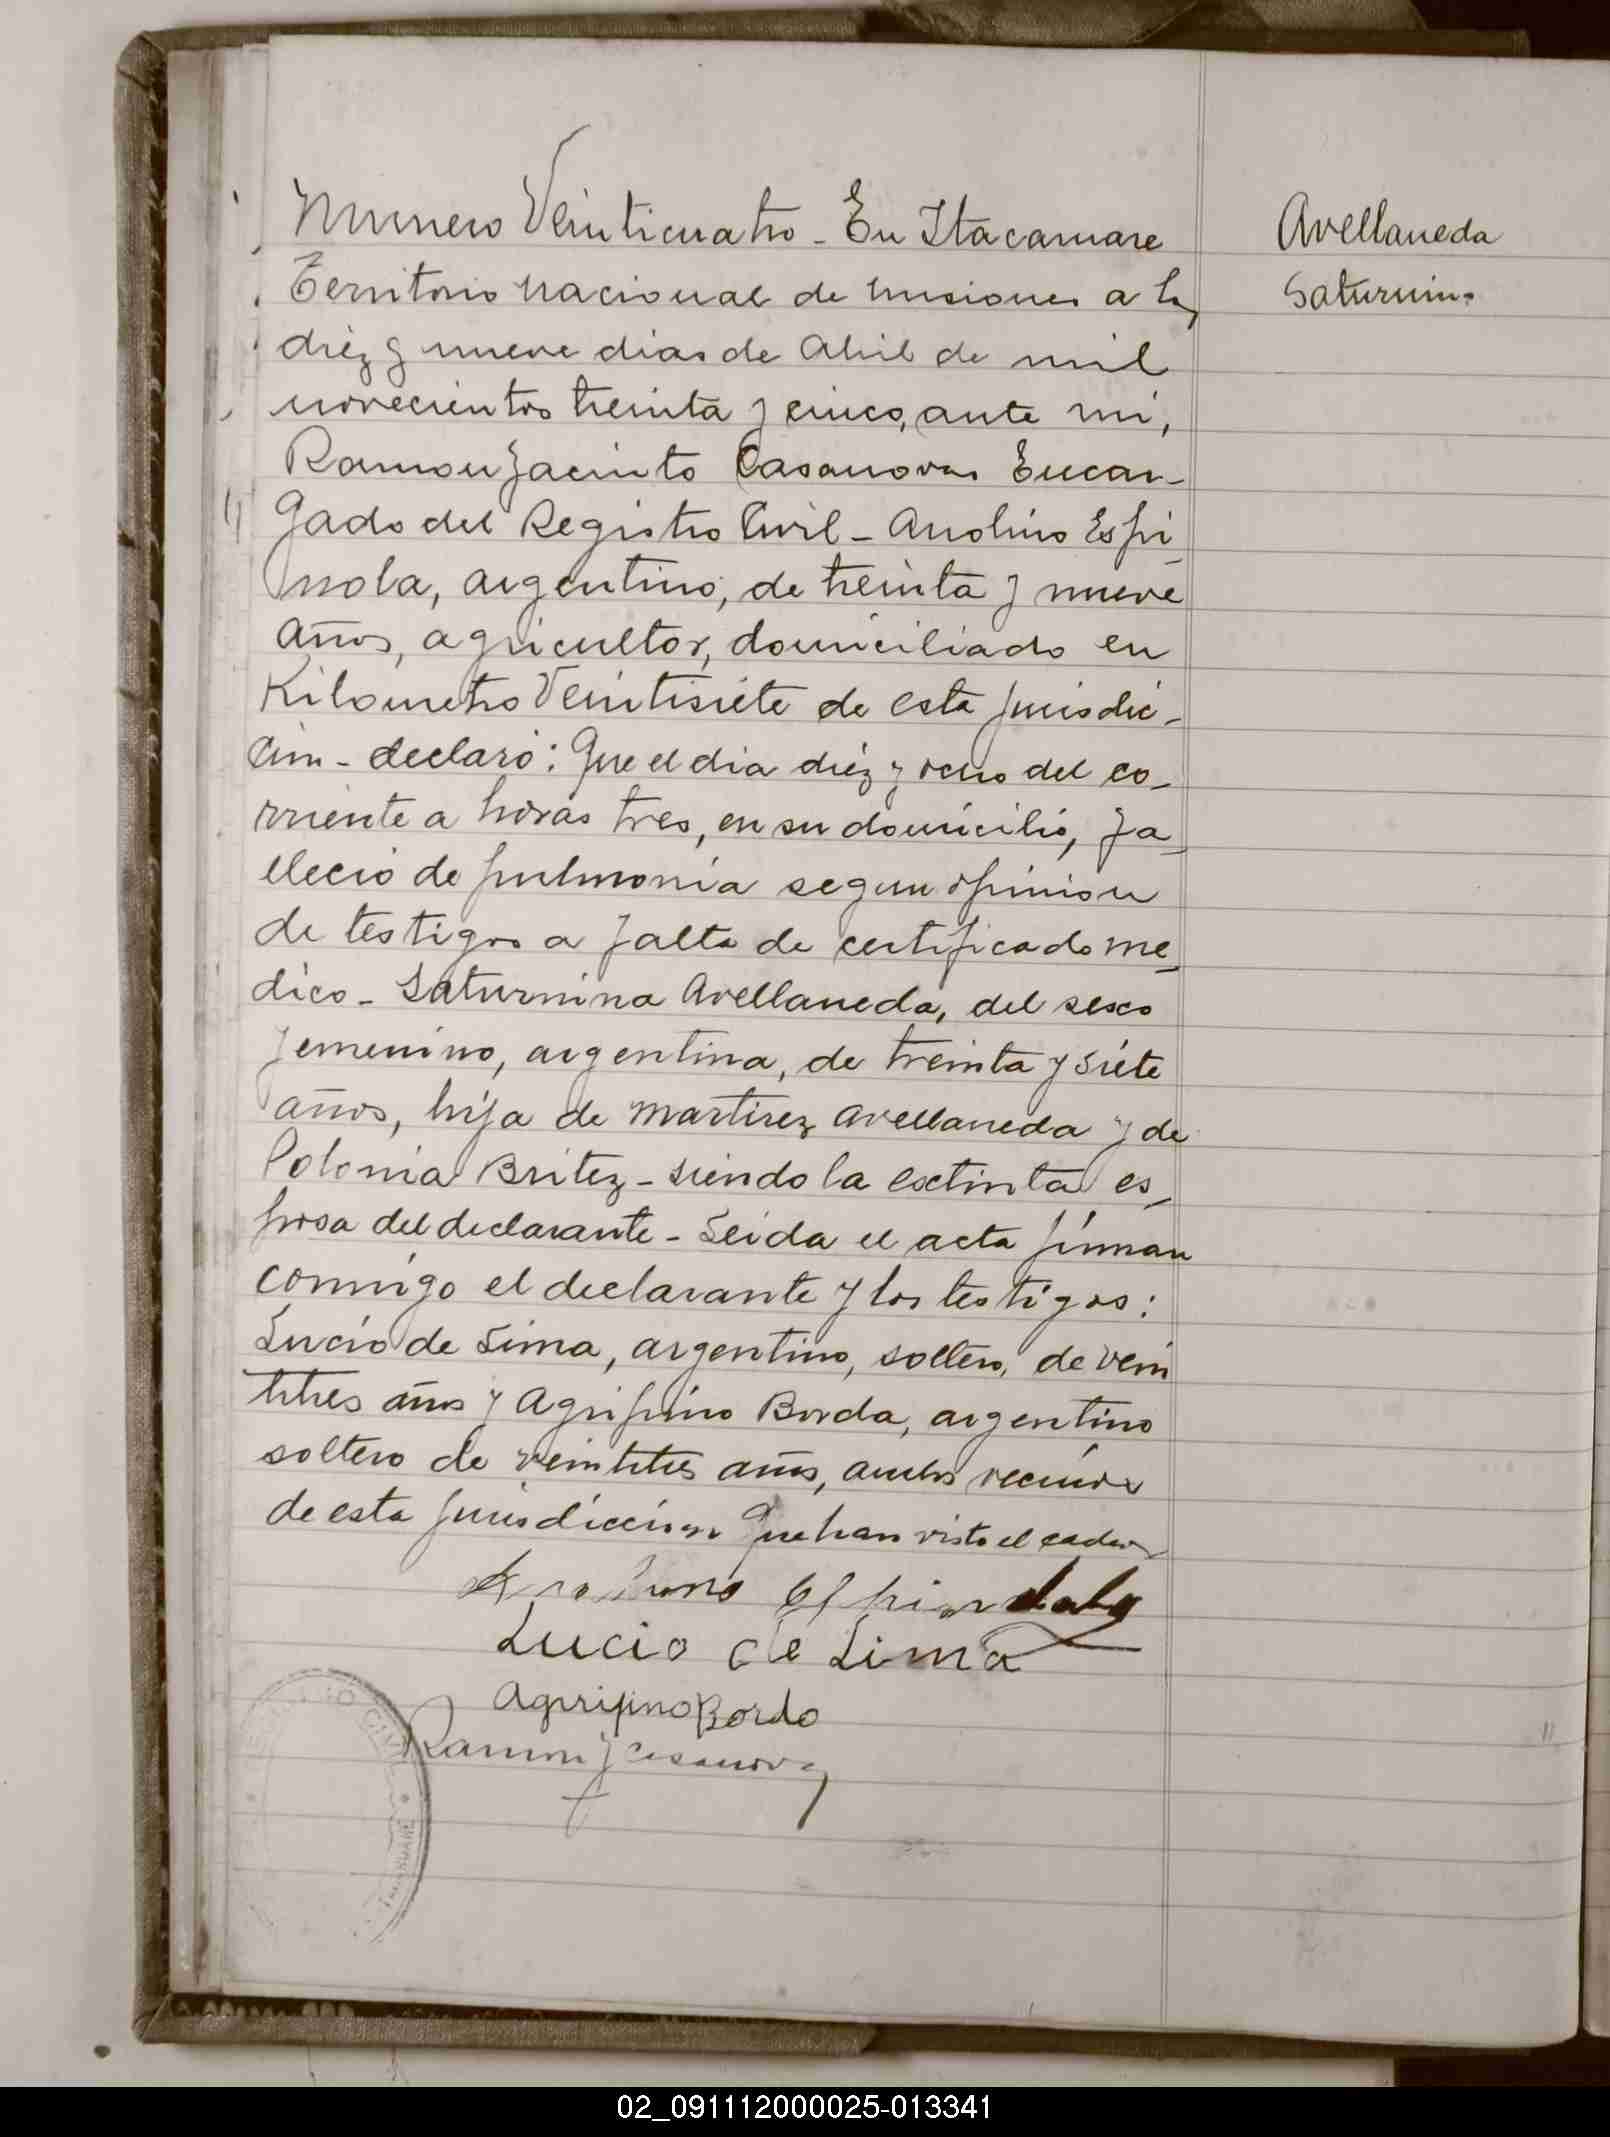 Numero Veinticuatro - En Itacaruare
Territorio nacional de Misiones a los
diéz y nueve dias de Abril de mil
novecientos treinta y cinco, ante mi,
Ramon Jacinto Casanovas Encar-
gado del Registro Civil - Anolino Espi
nola, argentino, de treinta y nueve
años, agricultor, domiciliado en
Kilometro Veintisiete de esta jurisdic-
cion - declaró: Que el dia diéz y ocho del co-
rriente a horas tres, en su domicilio, fa-
llecio de pulmonia segun opinion
de testigos a falta de certificado me-
dico - Saturnina Avellaneda, del sexo
femenino, argentina, de treinta y siete
años, hija de Martirez Avellaneda y de
Polonia Britez - siendo la extinta es-
posa del declarante - Leida el acta firman
conmigo el declarante y los testigos:
Lucio de Lima, argentino, soltero, de vein
titres años y Agripino Borda, argentino
soltero de veintitres años, ambos vecinos
de esta jurisdiccion que han visto el cadaver
Lucio de Lima
Agripino Bordo
Ramon J Casanovas
Avellaneda
Saturnina
REGISTRO CIVIL
ITACARUARE
02_091112000025-013341